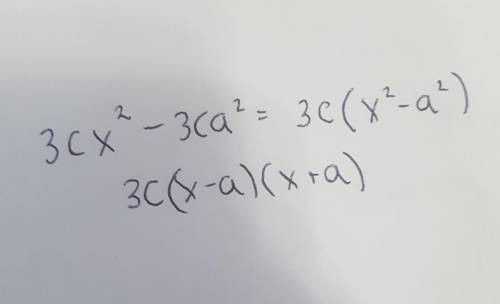 3cx² - 3ca² = 3c(x² - a²)
3c(x-a)(x+a)